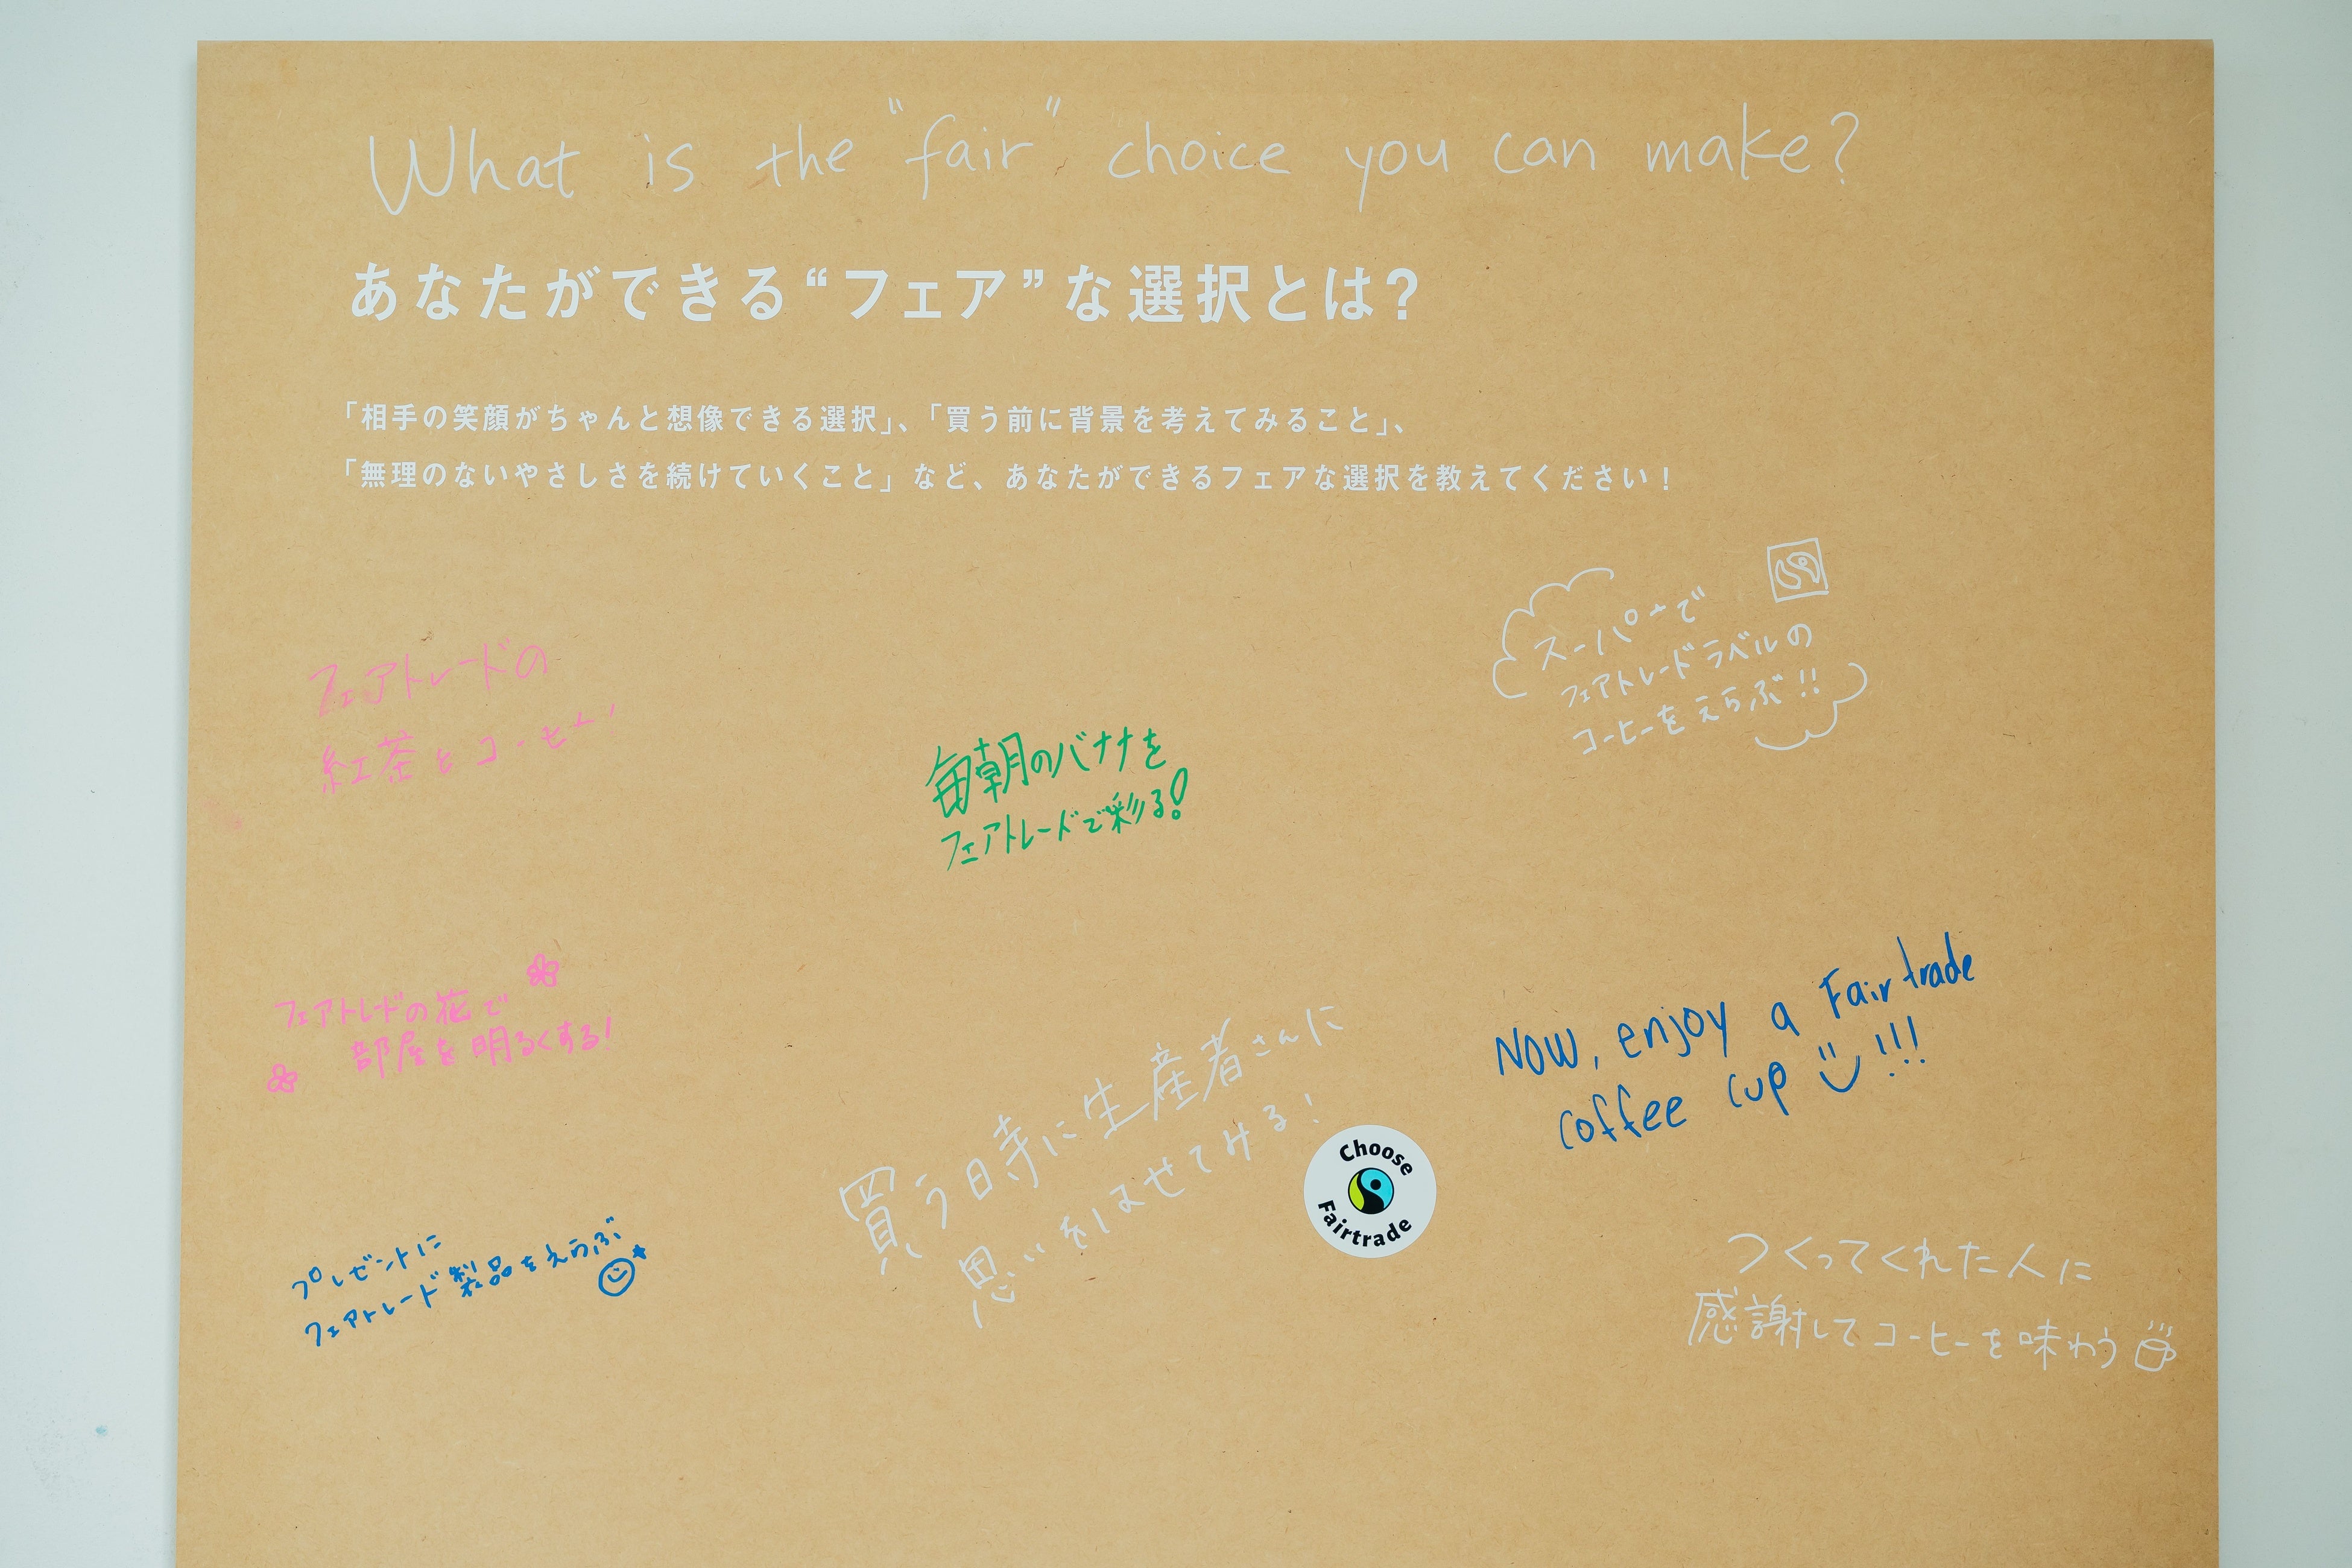 What is the "fair" choice you can make?
あなたができる“フェア”な選択とは?
「相手の笑顔がちゃんと想像できる選択」、「買う前に背景を考えてみること」、
「無理のないやさしさを続けていくこと」など、あなたができるフェアな選択を教えてください！
スーパーで
フェアトレードラベルの
コーヒーをえらぶ!!
フェアトレードの
紅茶とコーヒー!
毎朝のバナナを
フェアトレードで彩る!
フェアトレードの花で
部屋を明るくする!
Now, enjoy a Fairtrade
coffee cup !!!
買う時に生産者さんに
思いをはせてみる!
Choose
Fairtrade
プレゼントに
フェアトレード製品をえらぶ
つくってくれた人に
感謝してコーヒーを味わう